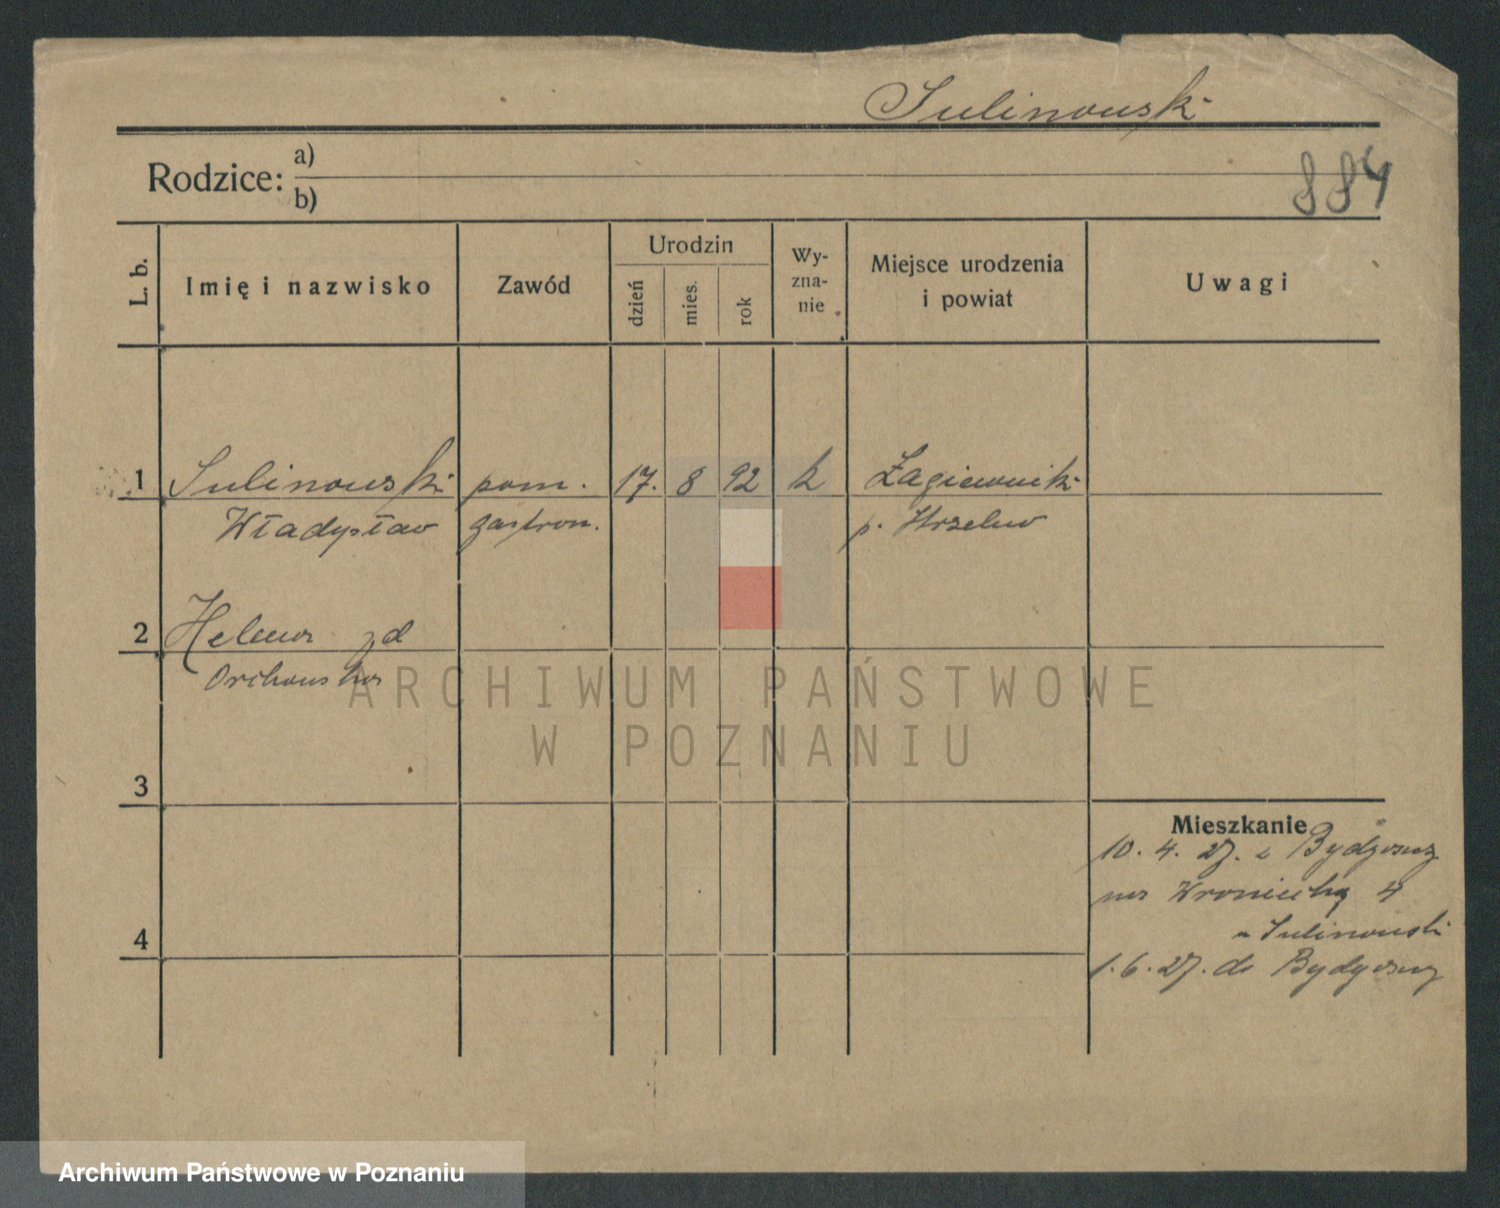 Sulinowski
Rodzice: a)
b)
884
L. b. Imię i nazwisko Zawód Urodzin dzień mies. rok Wy-zna-nie Miejsce urodzenia i powiat Uwagi
1 Sulinowski pom. 17. 8 92 k Łagiewniki
Władysław gastron. p. Strzelno
2 Helena zd
Orchowska
3
Mieszkanie
10. 4. 27. z Bydgoszcz
na Wroniecka 4
Sulinowski
4
1. 6. 27. do Bydgoszcz
ARCHIWUM PAŃSTWOWE
W POZNANIU
Archiwum Państwowe w Poznaniu